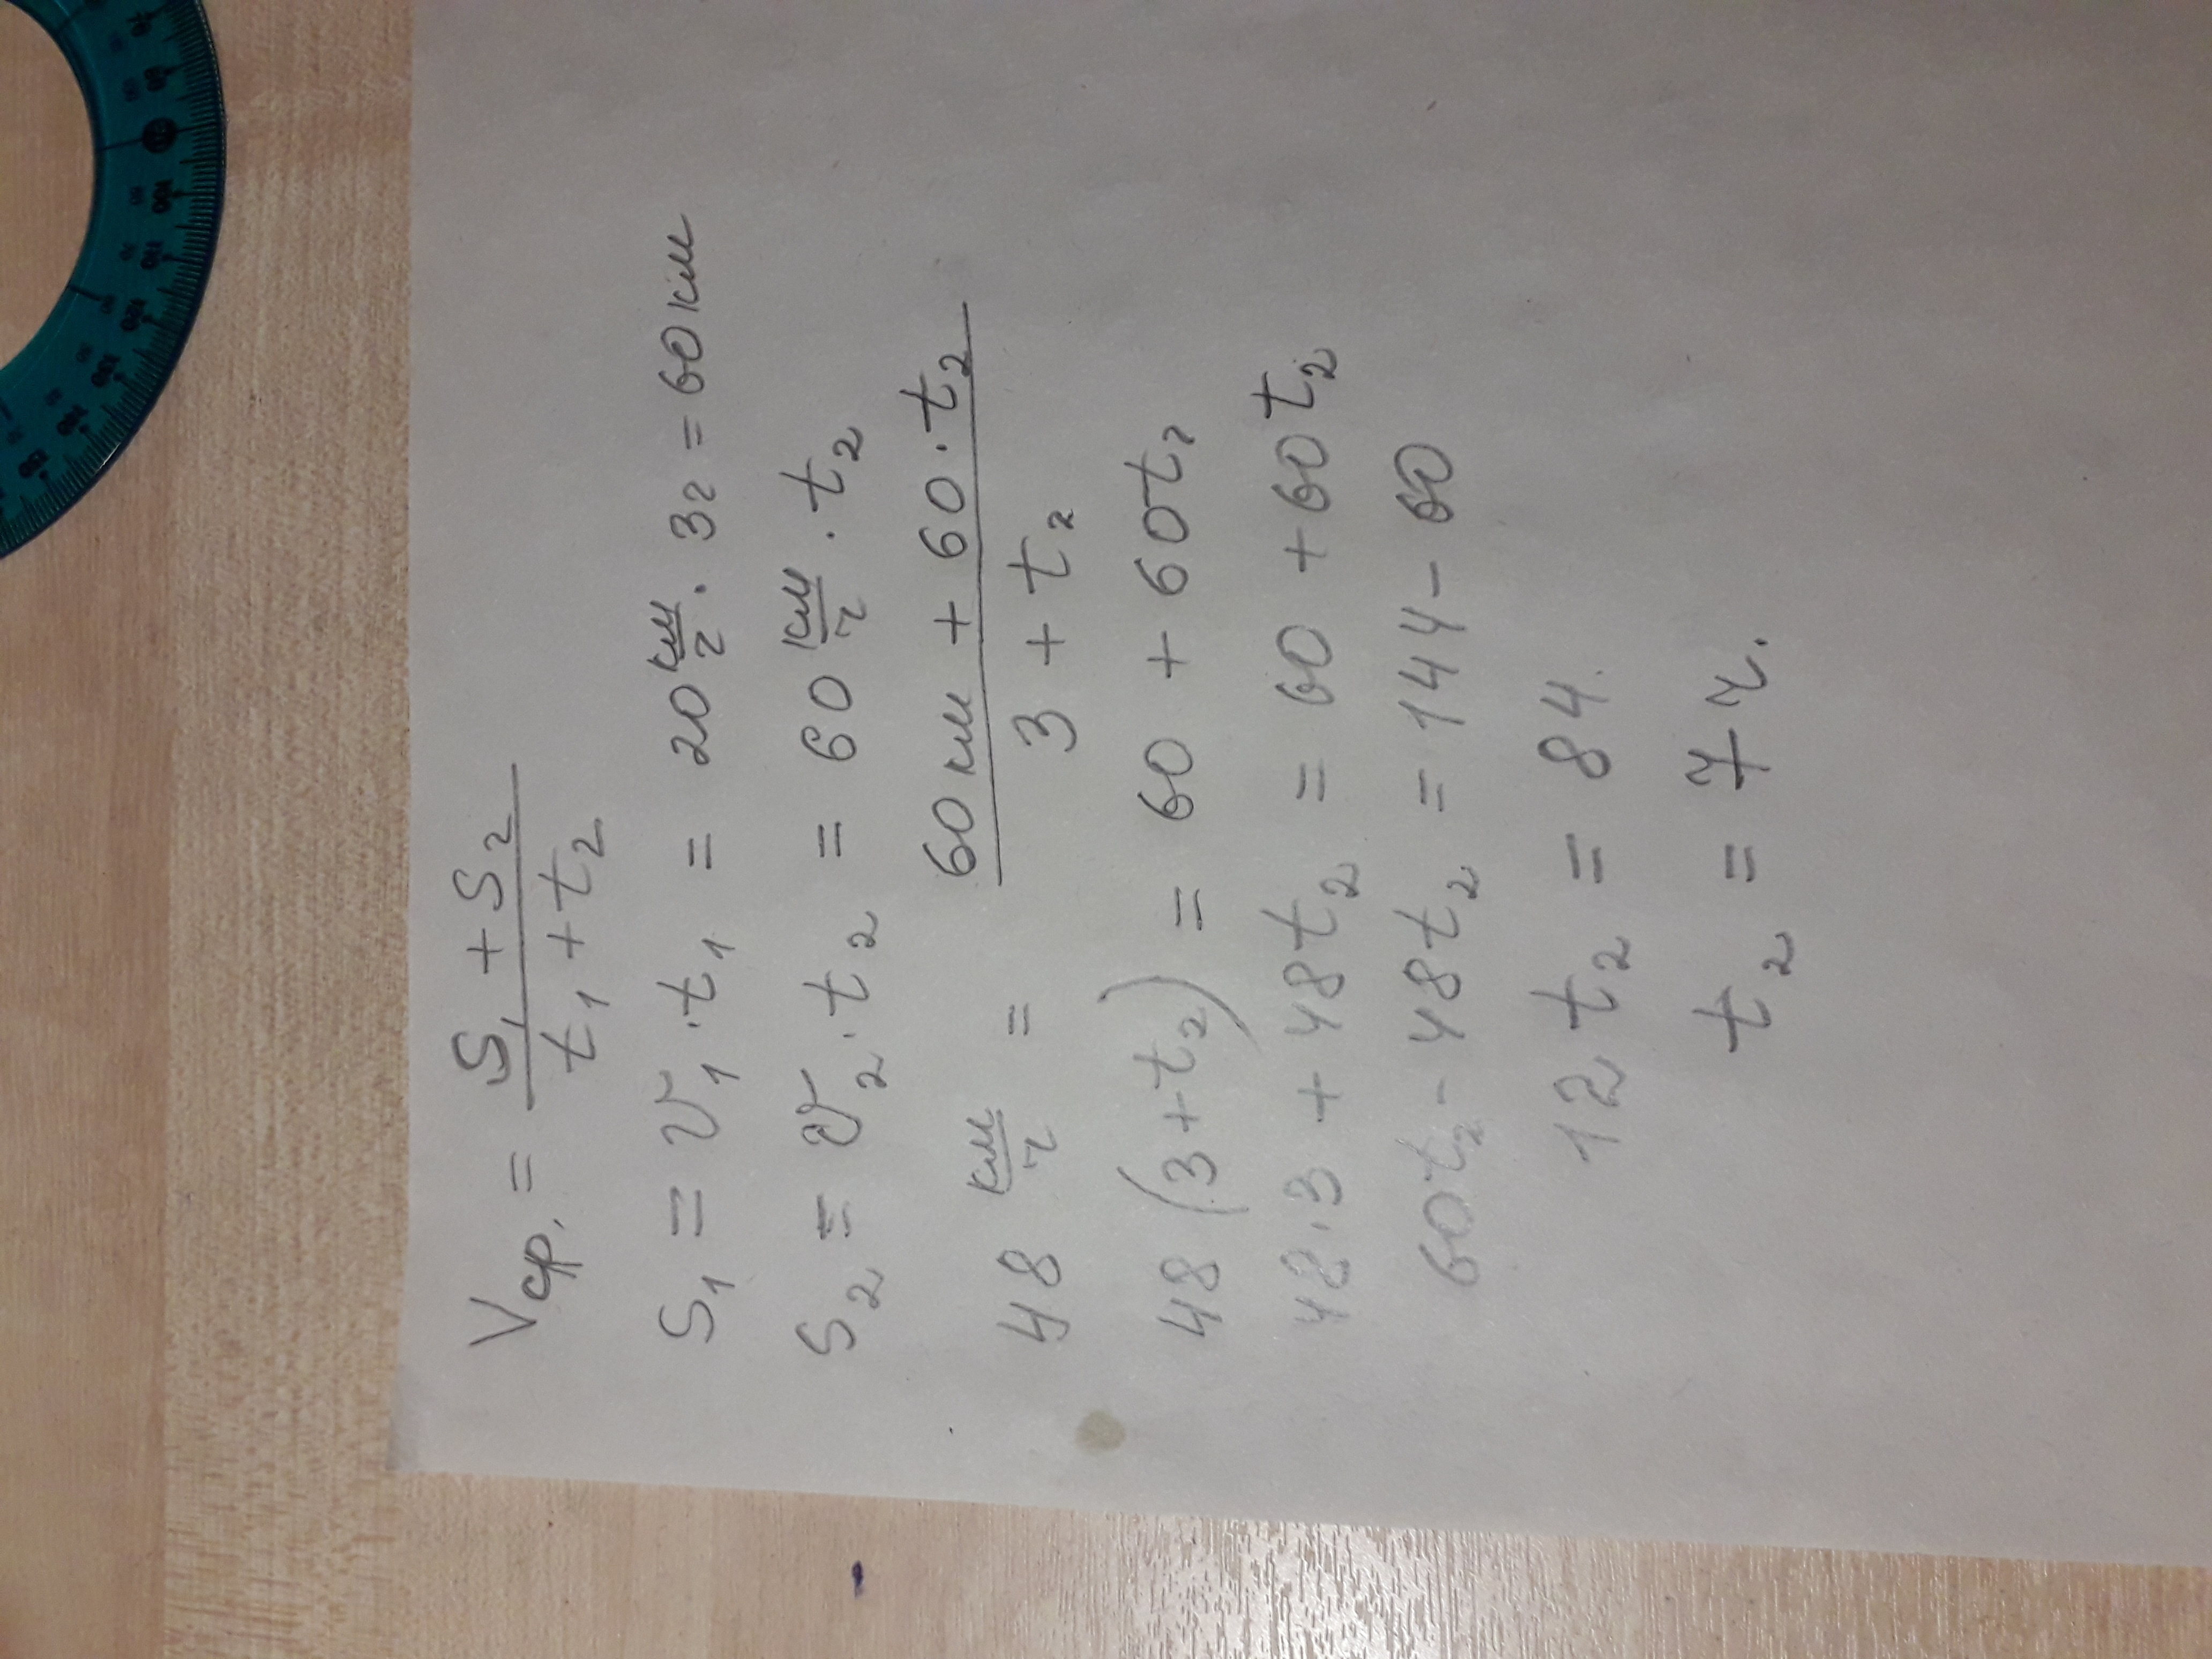 Vср. = S₁ + S₂ / t₁ + t₂
S₁ = v₁ · t₁ = 20 км/ч · 3ч = 60 км
S₂ = v₂ · t₂ = 60 км/ч · t₂
48 км/ч = 60 км + 60 · t₂ / 3 + t₂
48 (3 + t₂) = 60 + 60t₂
48 · 3 + 48t₂ = 60 + 60t₂
60t₂ - 48t₂ = 144 - 60
12 t₂ = 84.
t₂ = 7 ч.